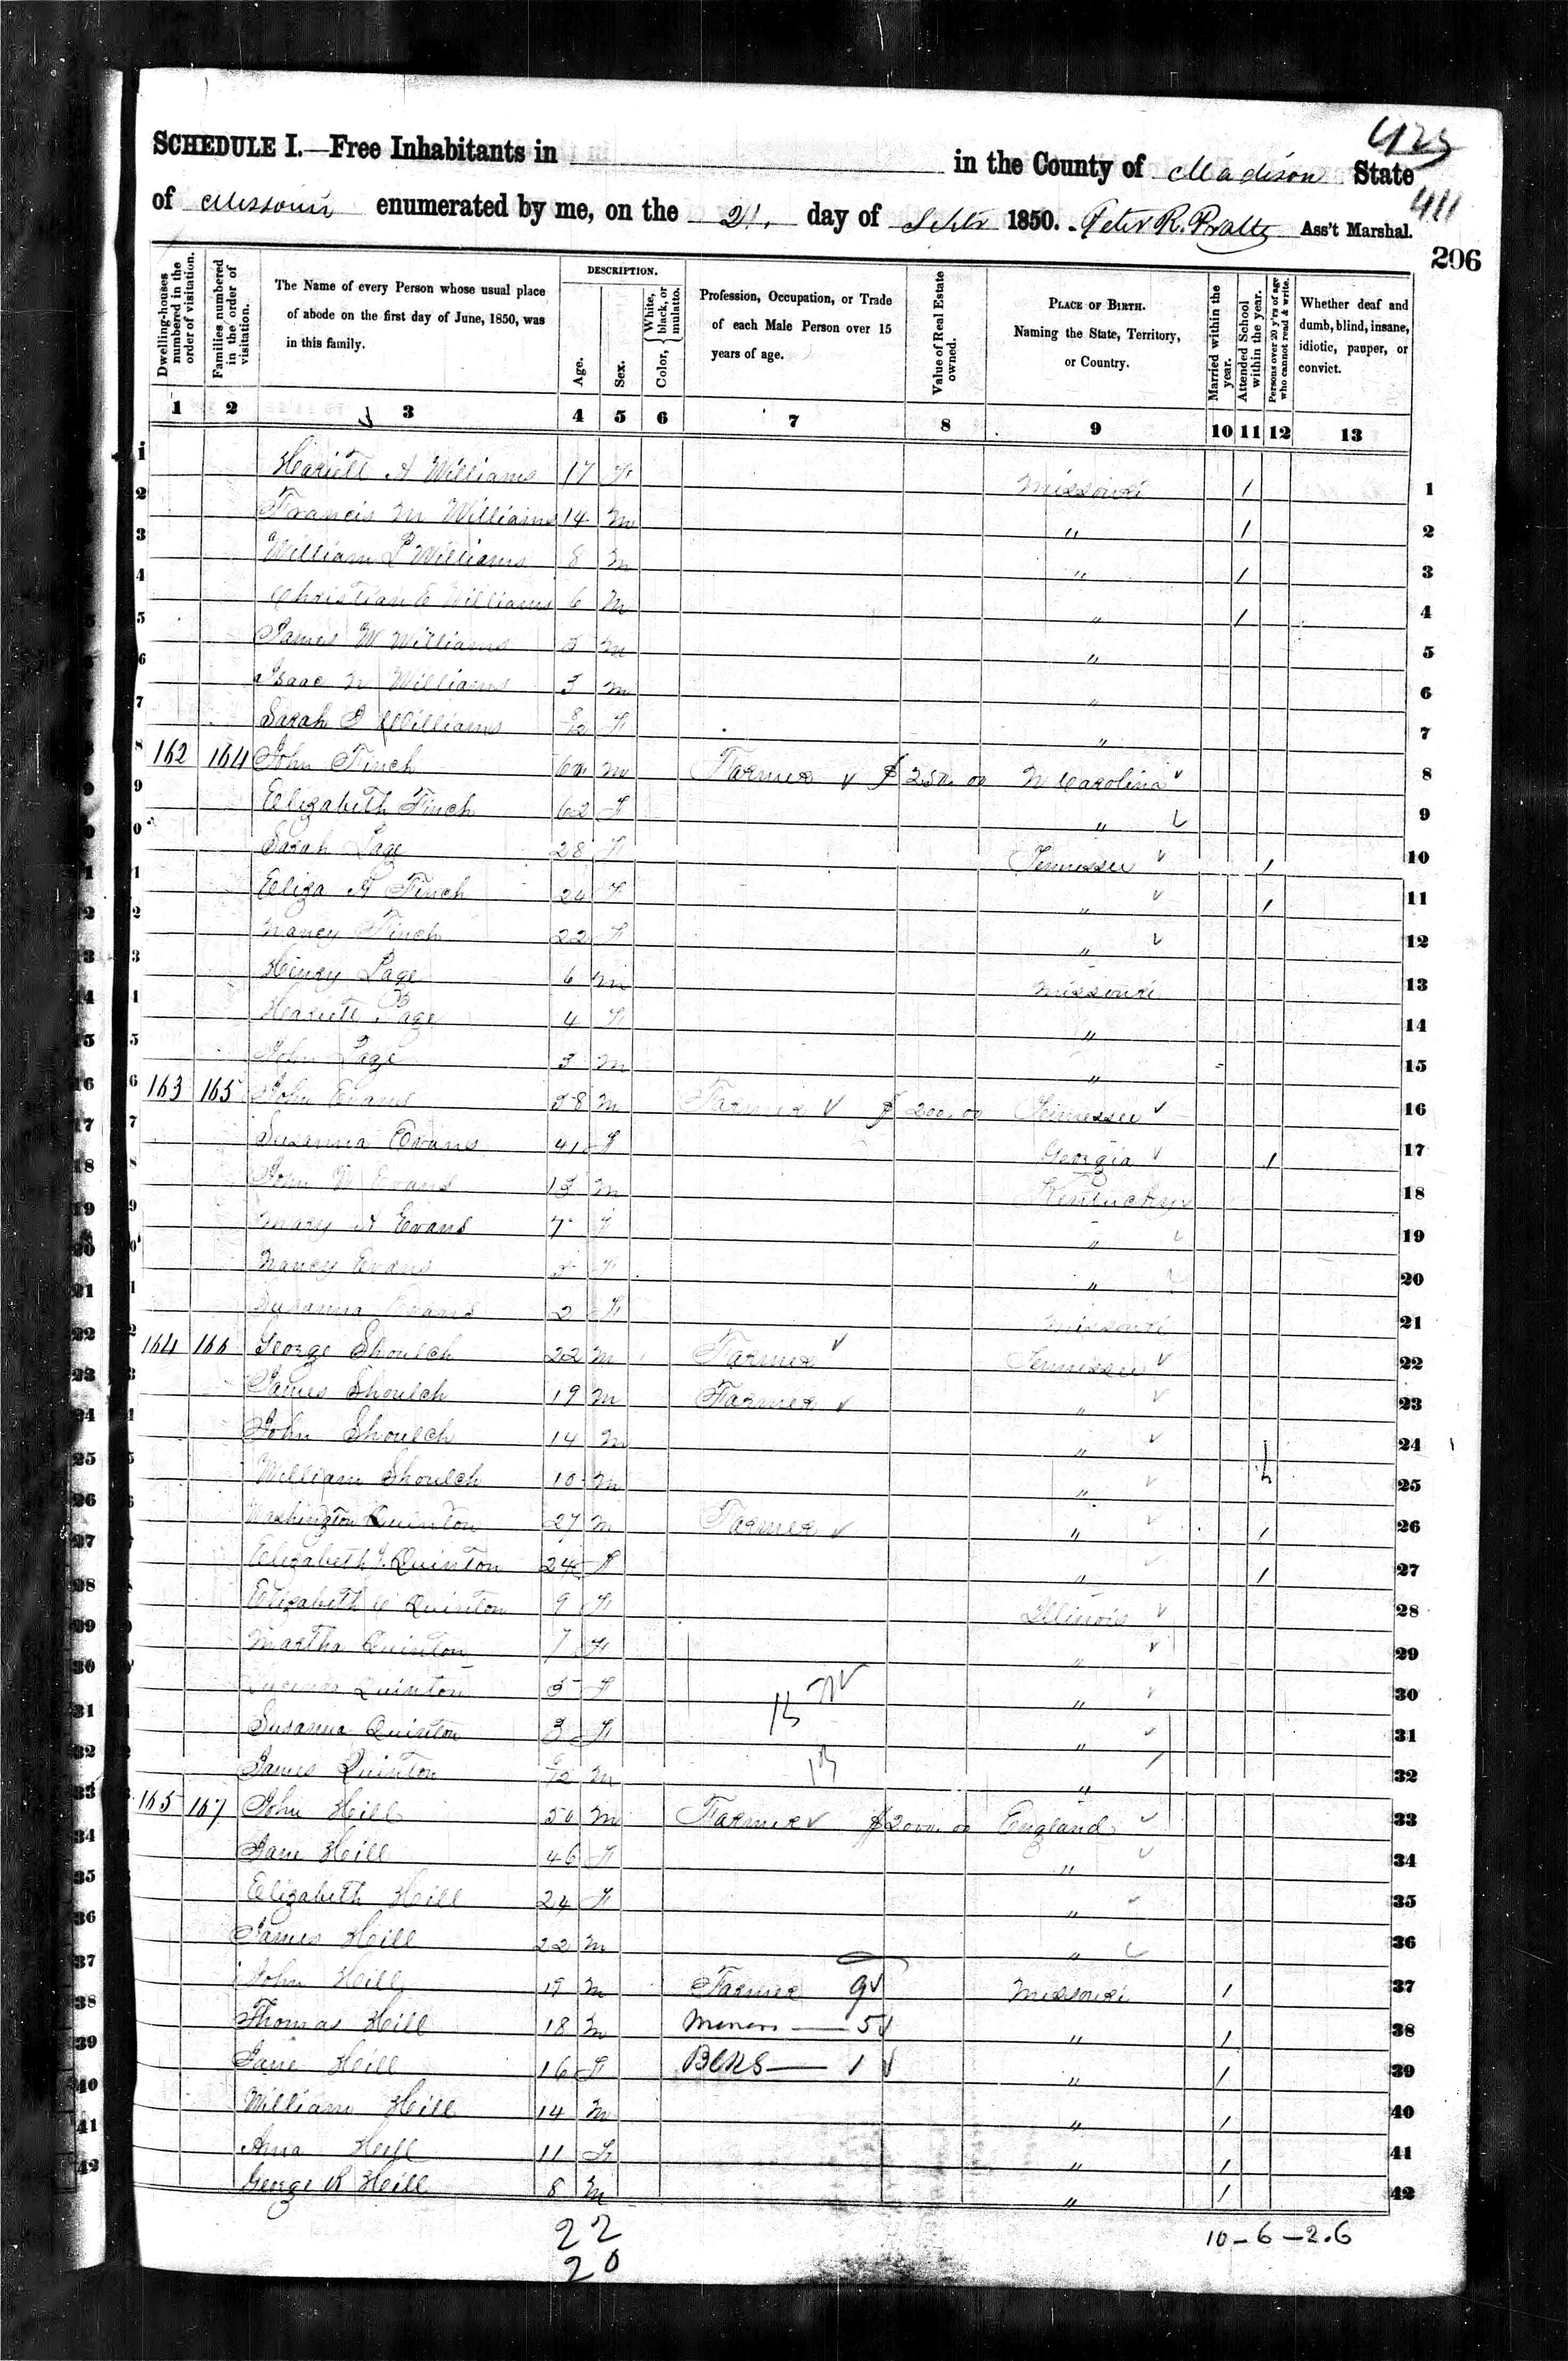 425
SCHEDULE I.—Free Inhabitants in in the County of Madison State
411
of Missouri enumerated by me, on the 21. day of Septr 1850. Peter R. Pratte Ass't Marshal.
206
Dwelling-houses numbered in the order of visitation.
Families numbered in the order of visitation.
The Name of every Person whose usual place of abode on the first day of June, 1850, was in this family.
DESCRIPTION.
Age.
Sex.
Color, { White, black, or mulatto.
Profession, Occupation, or Trade of each Male Person over 15 years of age.
Value of Real Estate owned.
PLACE OF BIRTH. Naming the State, Territory, or Country.
Married within the year.
Attended School within the year.
Persons over 20 y'rs of age who cannot read & write.
Whether deaf and dumb, blind, insane, idiotic, pauper, or convict.
1 2 3 4 5 6 7 8 9 10 11 12 13
1 Hariett A Williams 17 F Missouri / 1
2 Francis M Williams 14 M " / 2
3 William P Williams 8 M " / 3
4 Christian E Williams 6 M " / 4
5 James W Williams M " 5
6 Isaac N Williams 3 M " 6
7 Sarah Williams F " 7
8 162 164 John Finch M Farmer $ 250.00 N Carolina 8
9 Elizabeth Finch 62 F " 9
10 Sarah Page 28 F Tennessee / 10
11 Eliza A Finch 24 F " / 11
12 Nancy Finch 22 F " 12
13 Henry Page 6 M Missouri 13
14 Hariett Page 4 F " 14
15 John Page M " 15
16 163 165 John Evans M Farmer $ 200.00 Tennessee 16
17 Susanna Evans 41 F Georgia / 17
18 John W Evans 13 M Kentucky 18
19 Mary A Evans 7 F " 19
20 Nancy Evans F " 20
21 Susanna Evans 2 F Missouri 21
22 164 166 George Shoulch 22 M Farmer Tennessee 22
23 James Shoulch 19 M Farmer " 23
24 John Shoulch 14 M " 24
25 William Shoulch 10 M " 25
26 Washington Quinton 27 M Farmer " / 26
27 Elizabeth J. Quinton 24 F " / 27
28 Elizabeth C Quinton 9 F Illinois 28
29 Martha Quinton 7 F " 29
30 Lucinda Quinton 5 F " 30
31 Susanna Quinton 3 F " 31
32 James Quinton M " 32
33 165 167 John Heill 50 M Farmer $2000.00 England 33
34 Jane Heill 46 F " 34
35 Elizabeth Heill 24 F " 35
36 James Heill 22 M " 36
37 John Heill 19 M Farmer 9 Missouri / 37
38 Thomas Heill 18 M Miners — 5 " / 38
39 Jane Heill 16 F BCKS — 1 " / 39
40 William Heill 14 M " / 40
41 Ana Heill 11 F " / 41
42 George R Heill 8 M " / 42
22
20
10 - 6 - 2.6